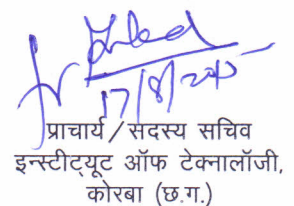 17/8/2015
प्राचार्य/सदस्य सचिव
इन्स्टीट्यूट ऑफ टेक्नालॉजी,
कोरबा (छ.ग.)